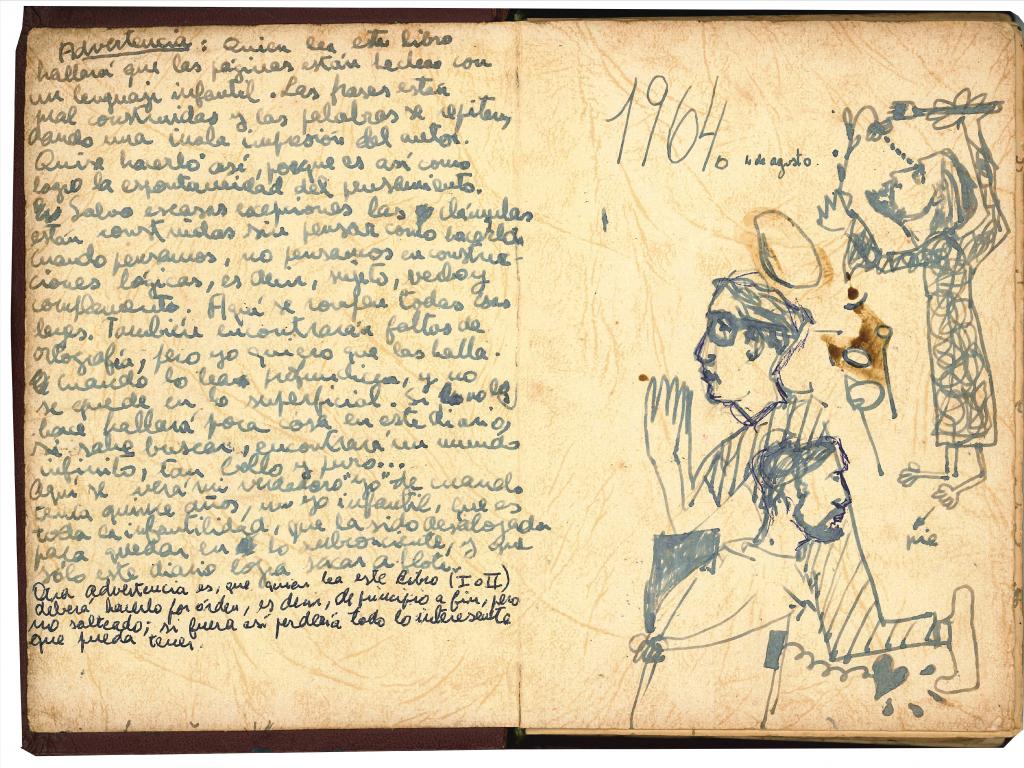 Advertencia: Quien lea este libro
hallará que las páginas están hechas con
un lenguaje infantil. Las frases están
mal construidas y las palabras se repiten,
dando una mala impresión del autor.
Quise hacerlo así, porque es así como
logro la espontaneidad del pensamiento.
Salvo escasas exepciones las cláusulas
están construidas sin pensar como hacerlas
cuando pensamos, no pensamos en construc-
ciones lógicas, es decir, sujeto, verbo y
complemento. Aquí se rompen todas esas
leyes. También encontrarán faltas de
ortografía, pero yo quiero que las halla.
cuando lo lea profundice, y no
se quede en lo superficial. Si no lo
hace hallará poca cosa en este diario,
si sabe buscar, encontrará un mundo
infinito, tan bello y puro...
Aquí se verá mi verdadero "yo" de cuando
tenía quince años, un yo infantil, que es
toda la infantilidad, que ha sido desalojada
para quedar en lo subconciente, y que
sólo este diario logra sacar a flote.
Otra advertencia es, que quien lea este libro (I o II)
deberá hacerlo por órden, es decir, de principio a fin, pero
no salteado; si fuera así perdería todo lo interesante
que pueda tener.
1964
4 de agosto.
pie